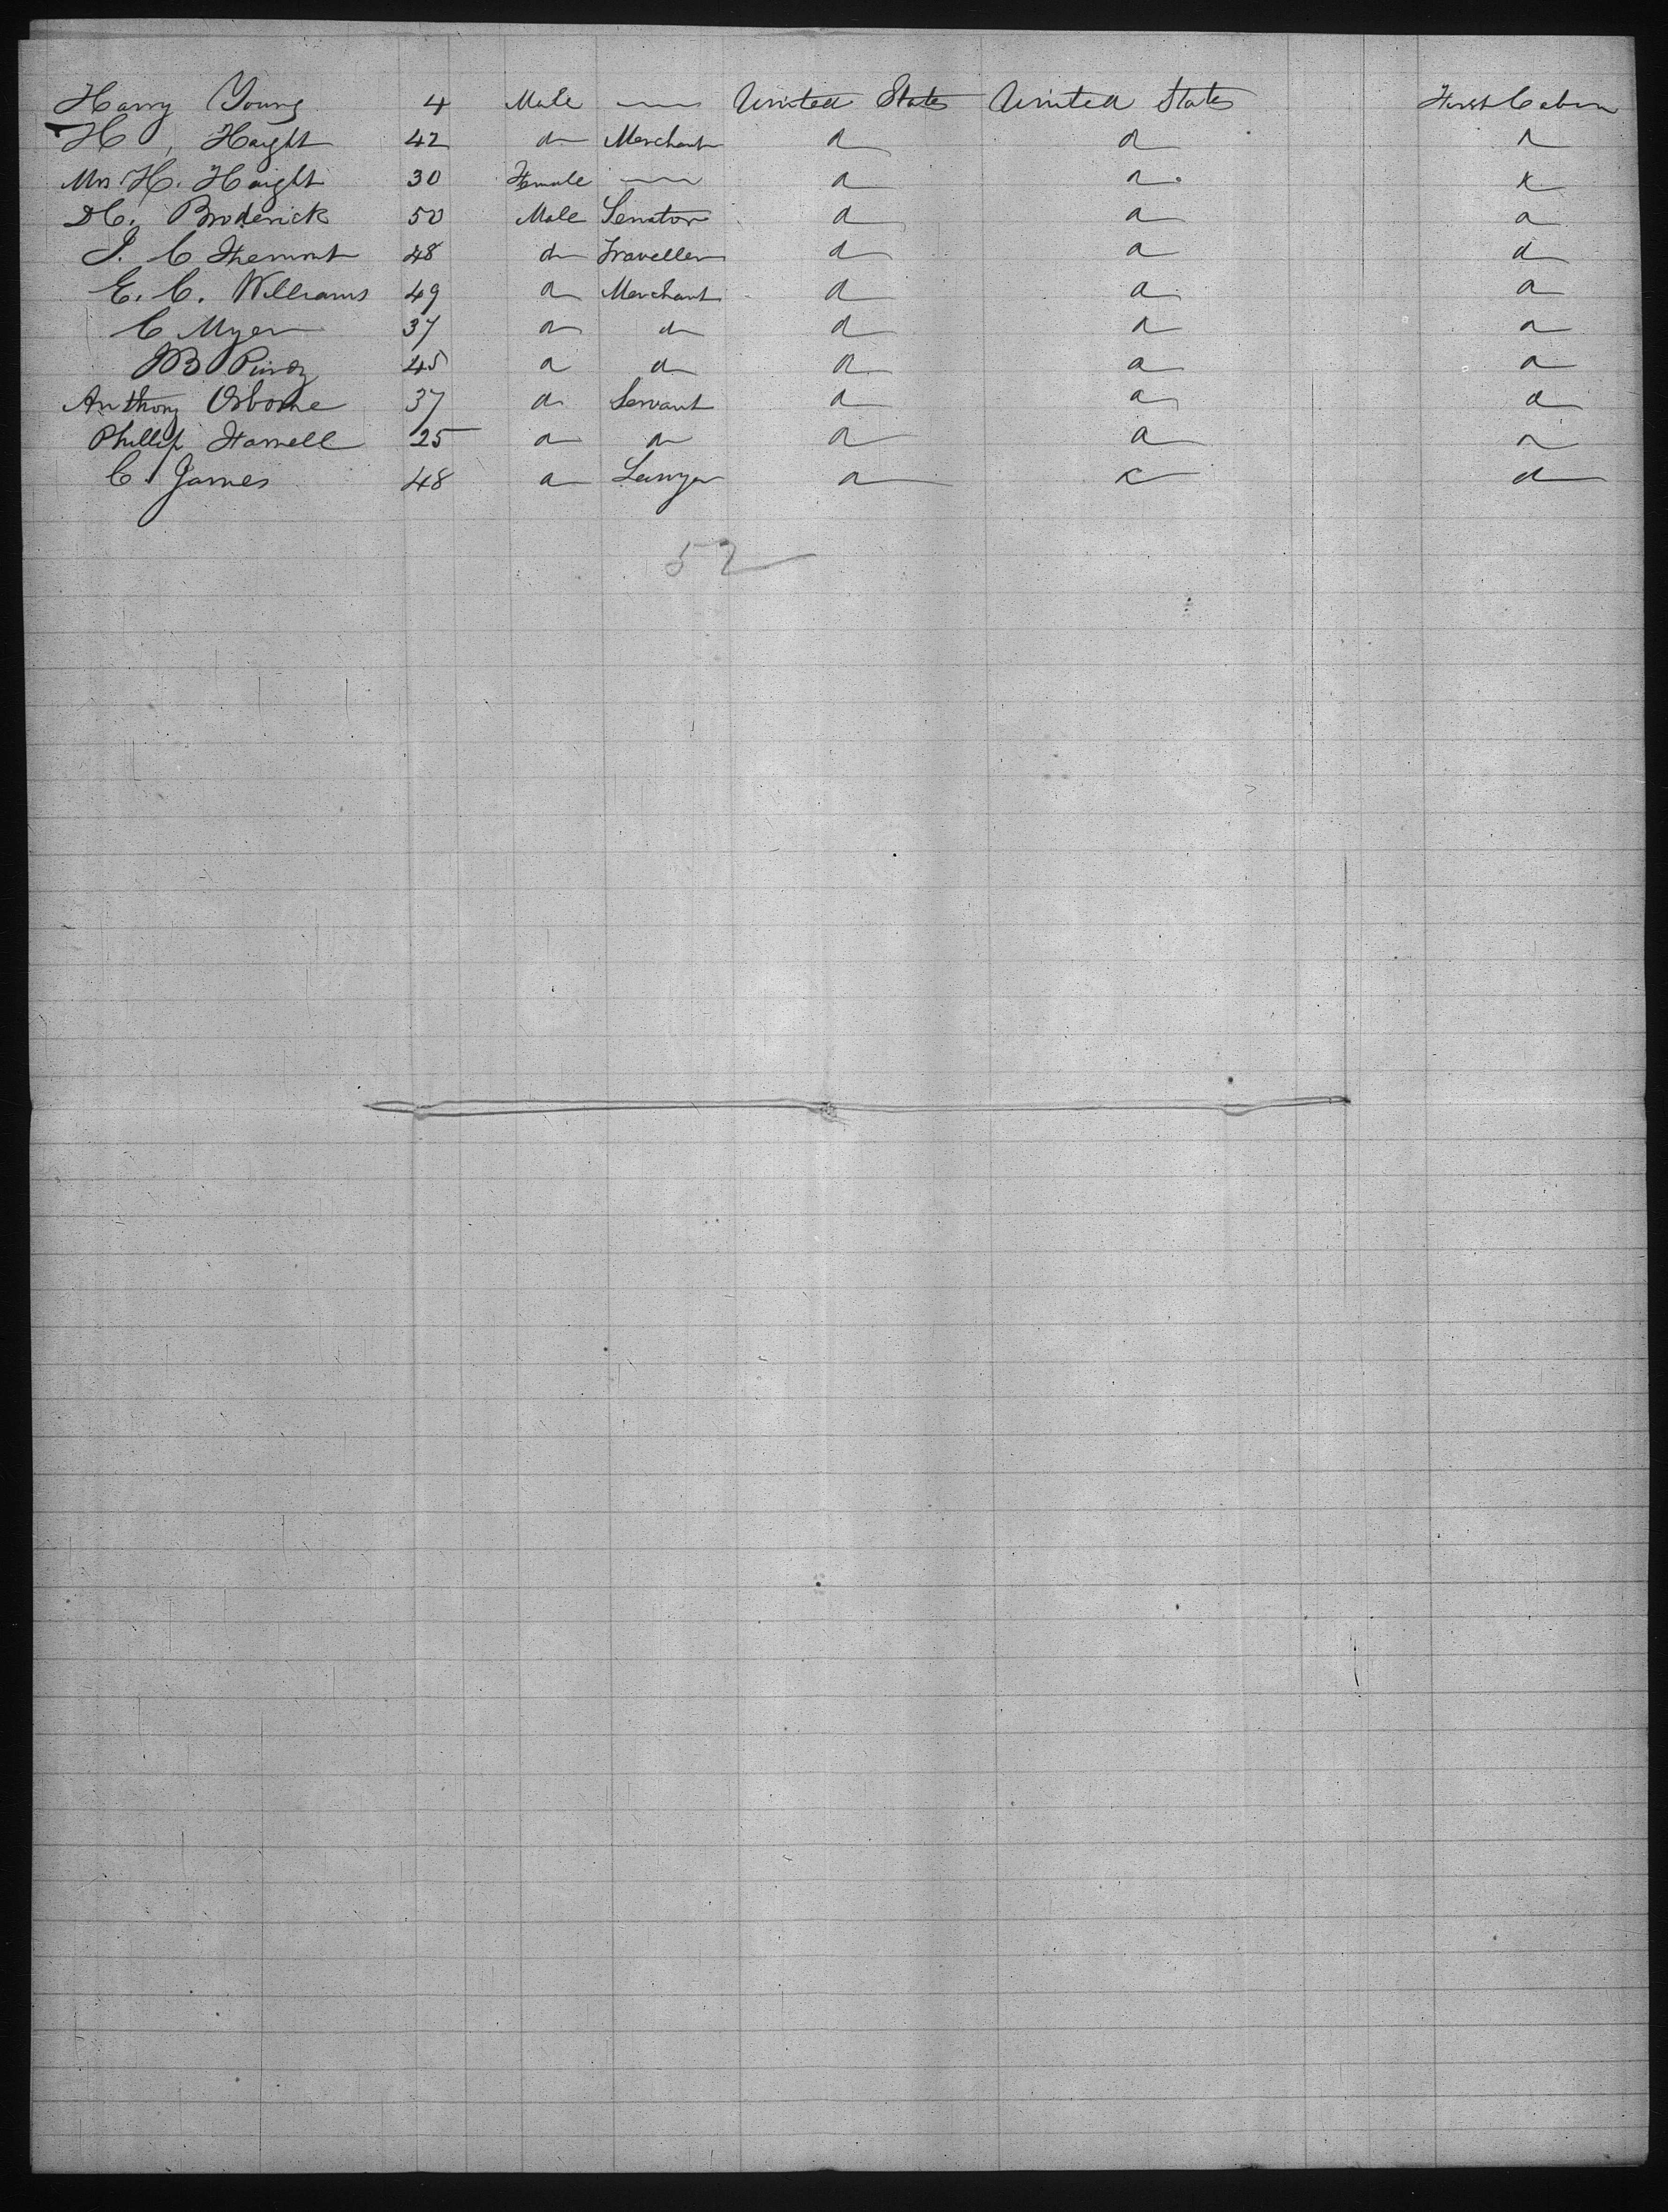 Harry Young 4 Male — United States United States First Cabin
H, Haight 42 do Merchant do do do
Mrs H. Haight 30 Female — do do do
D C. Broderick 50 Male Senator do do do
J. C Fremont 48 do Traveller do do do
E. C. Williams 49 do Merchant do do do
C Myer 37 do do do do do
45 do do do do do
Anthony Osborne 37 do Servant do do do
Phillip Farrell 25 do do do do do
C. James 48 do Lawyer do do do
52